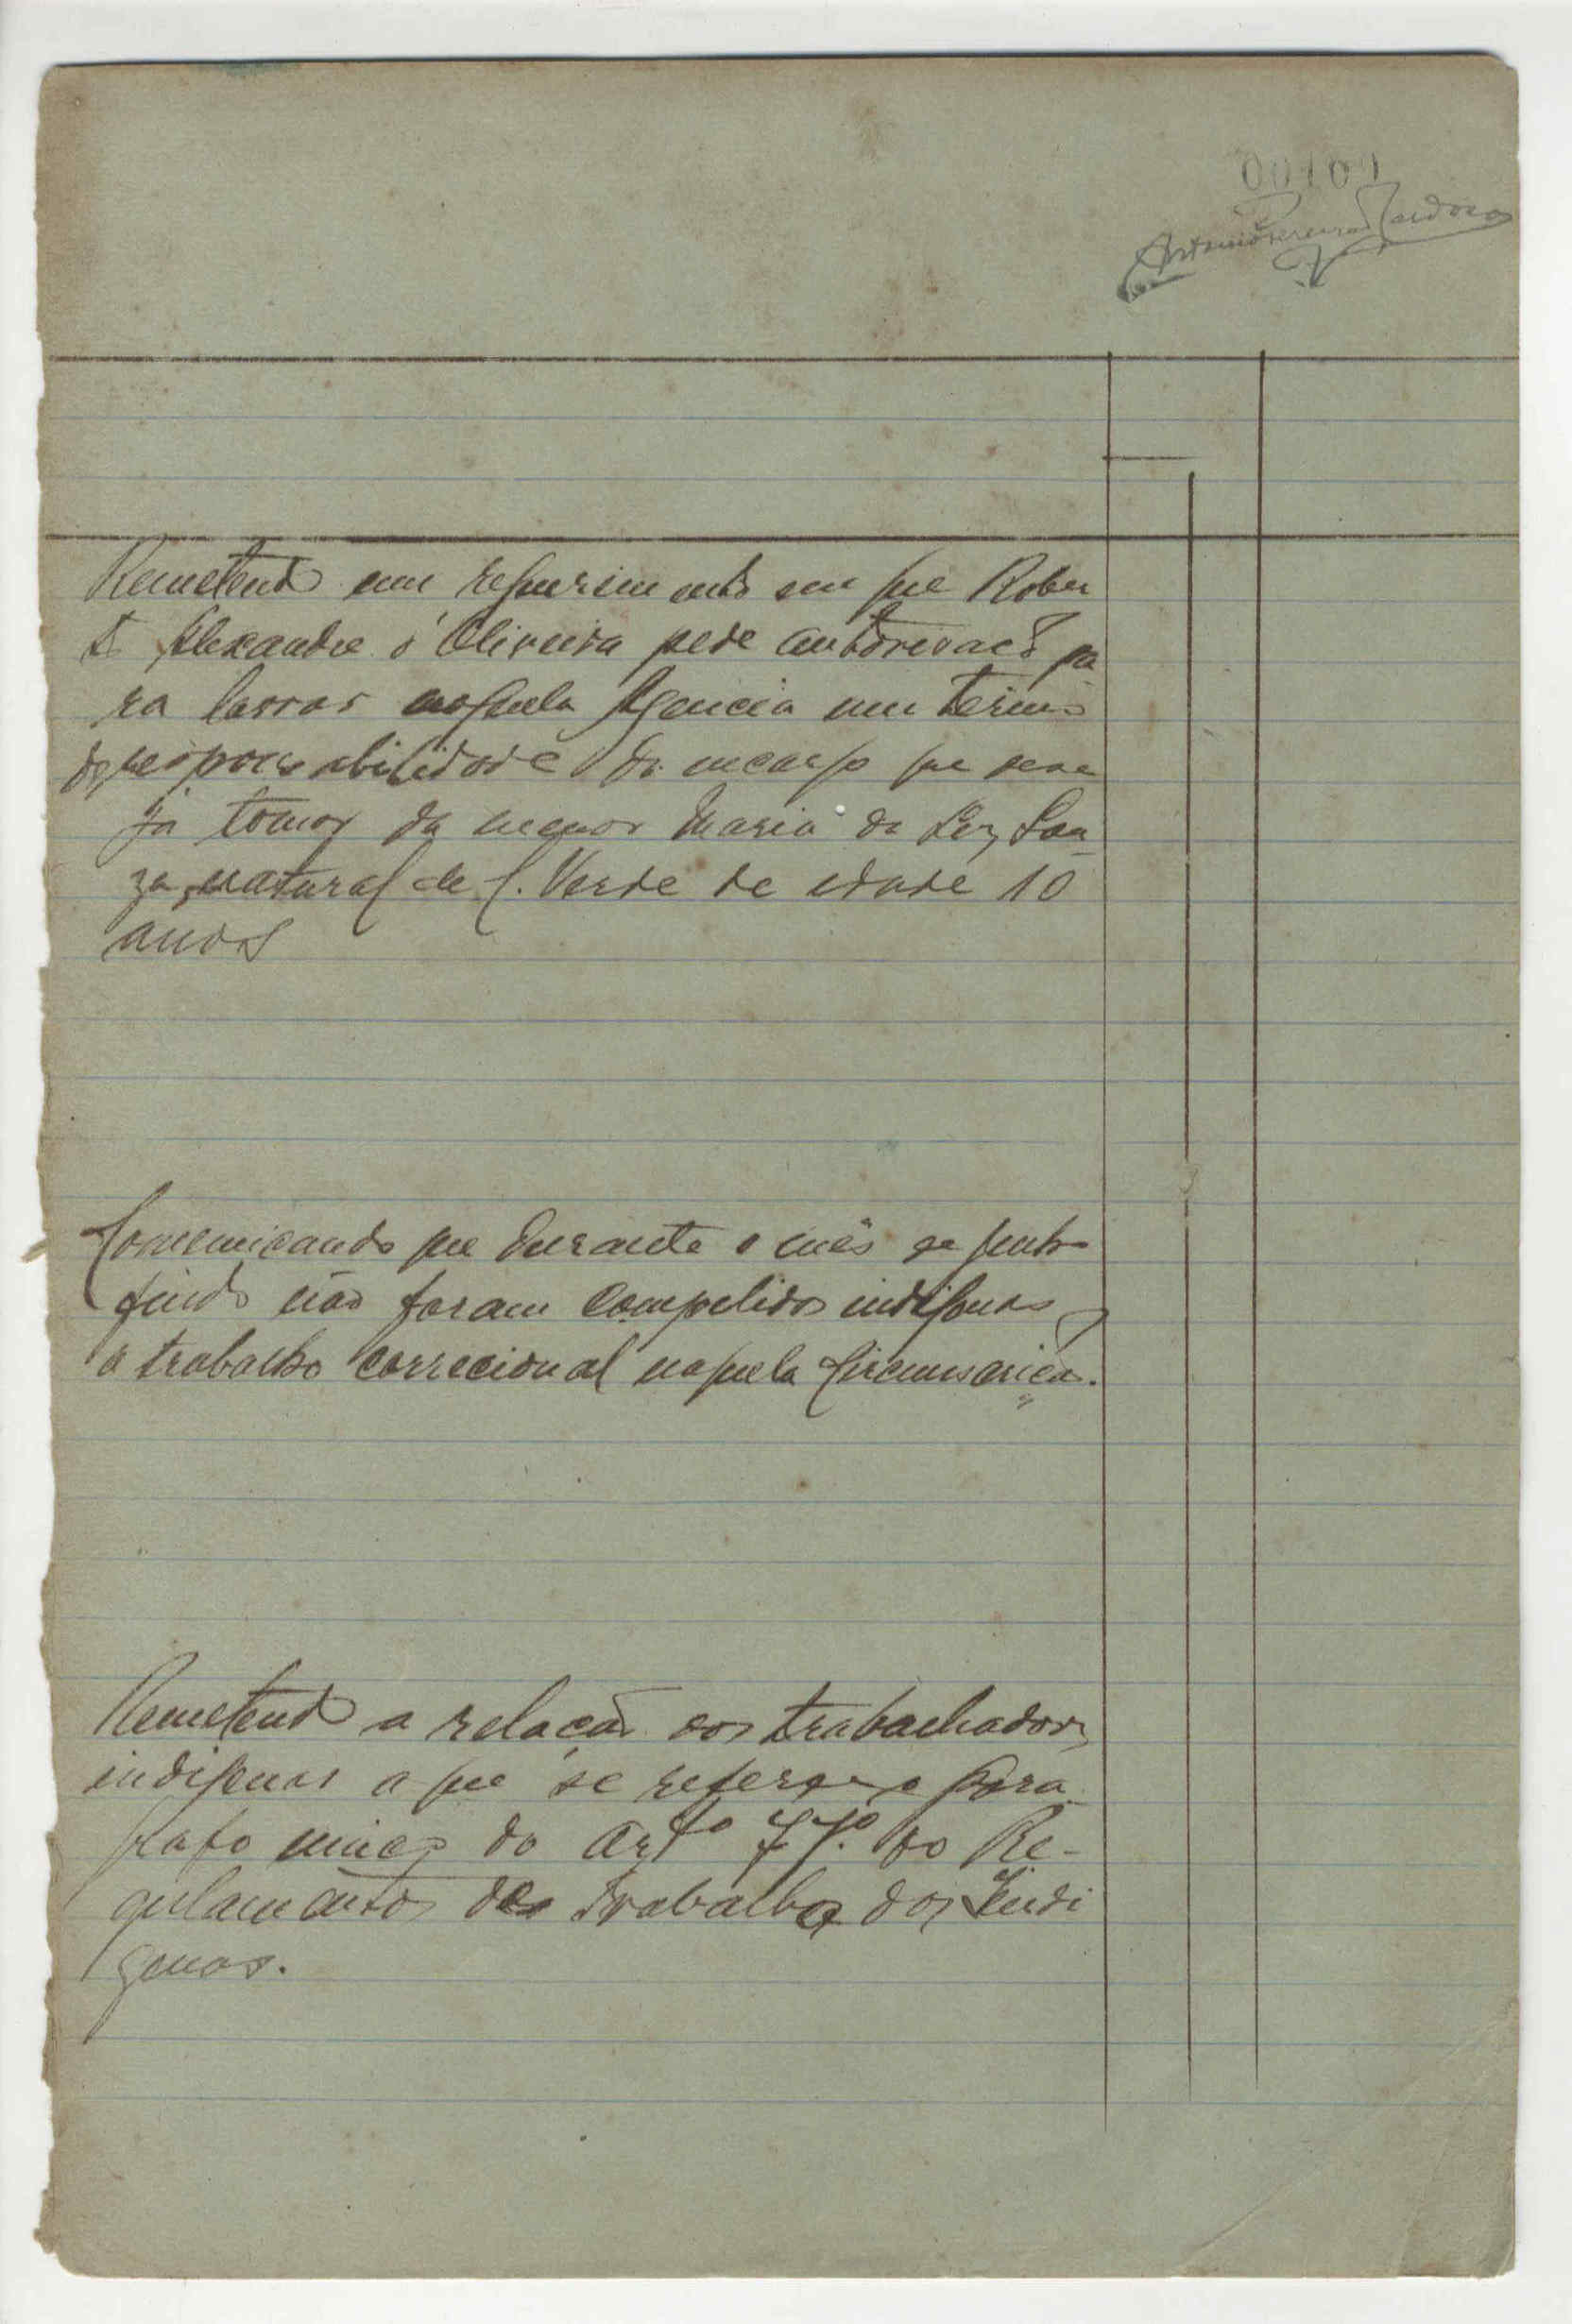 00101
Antonio Pereira Cardoso
Remetendo um requerimento em que Rober
to Alexandre d'Oliveira pede autorisacão pa
ra lavrar naquela Agencia um termo
de responsabilidade do encargo que dese
ja tomar da menor Maria da Luz, Sou
za, natural de C. Verde de edade 10
anos
Comunicando que durante o mês
findo não foram compelidos indigenas
a trabalho correcional naquela Circunscrição.
Remetendo a relação dos trabalhadores
indigenas a que se refere o para
grafo unico do artº 77º do Re-
gulamento do Trabalho dos Indi
genas.